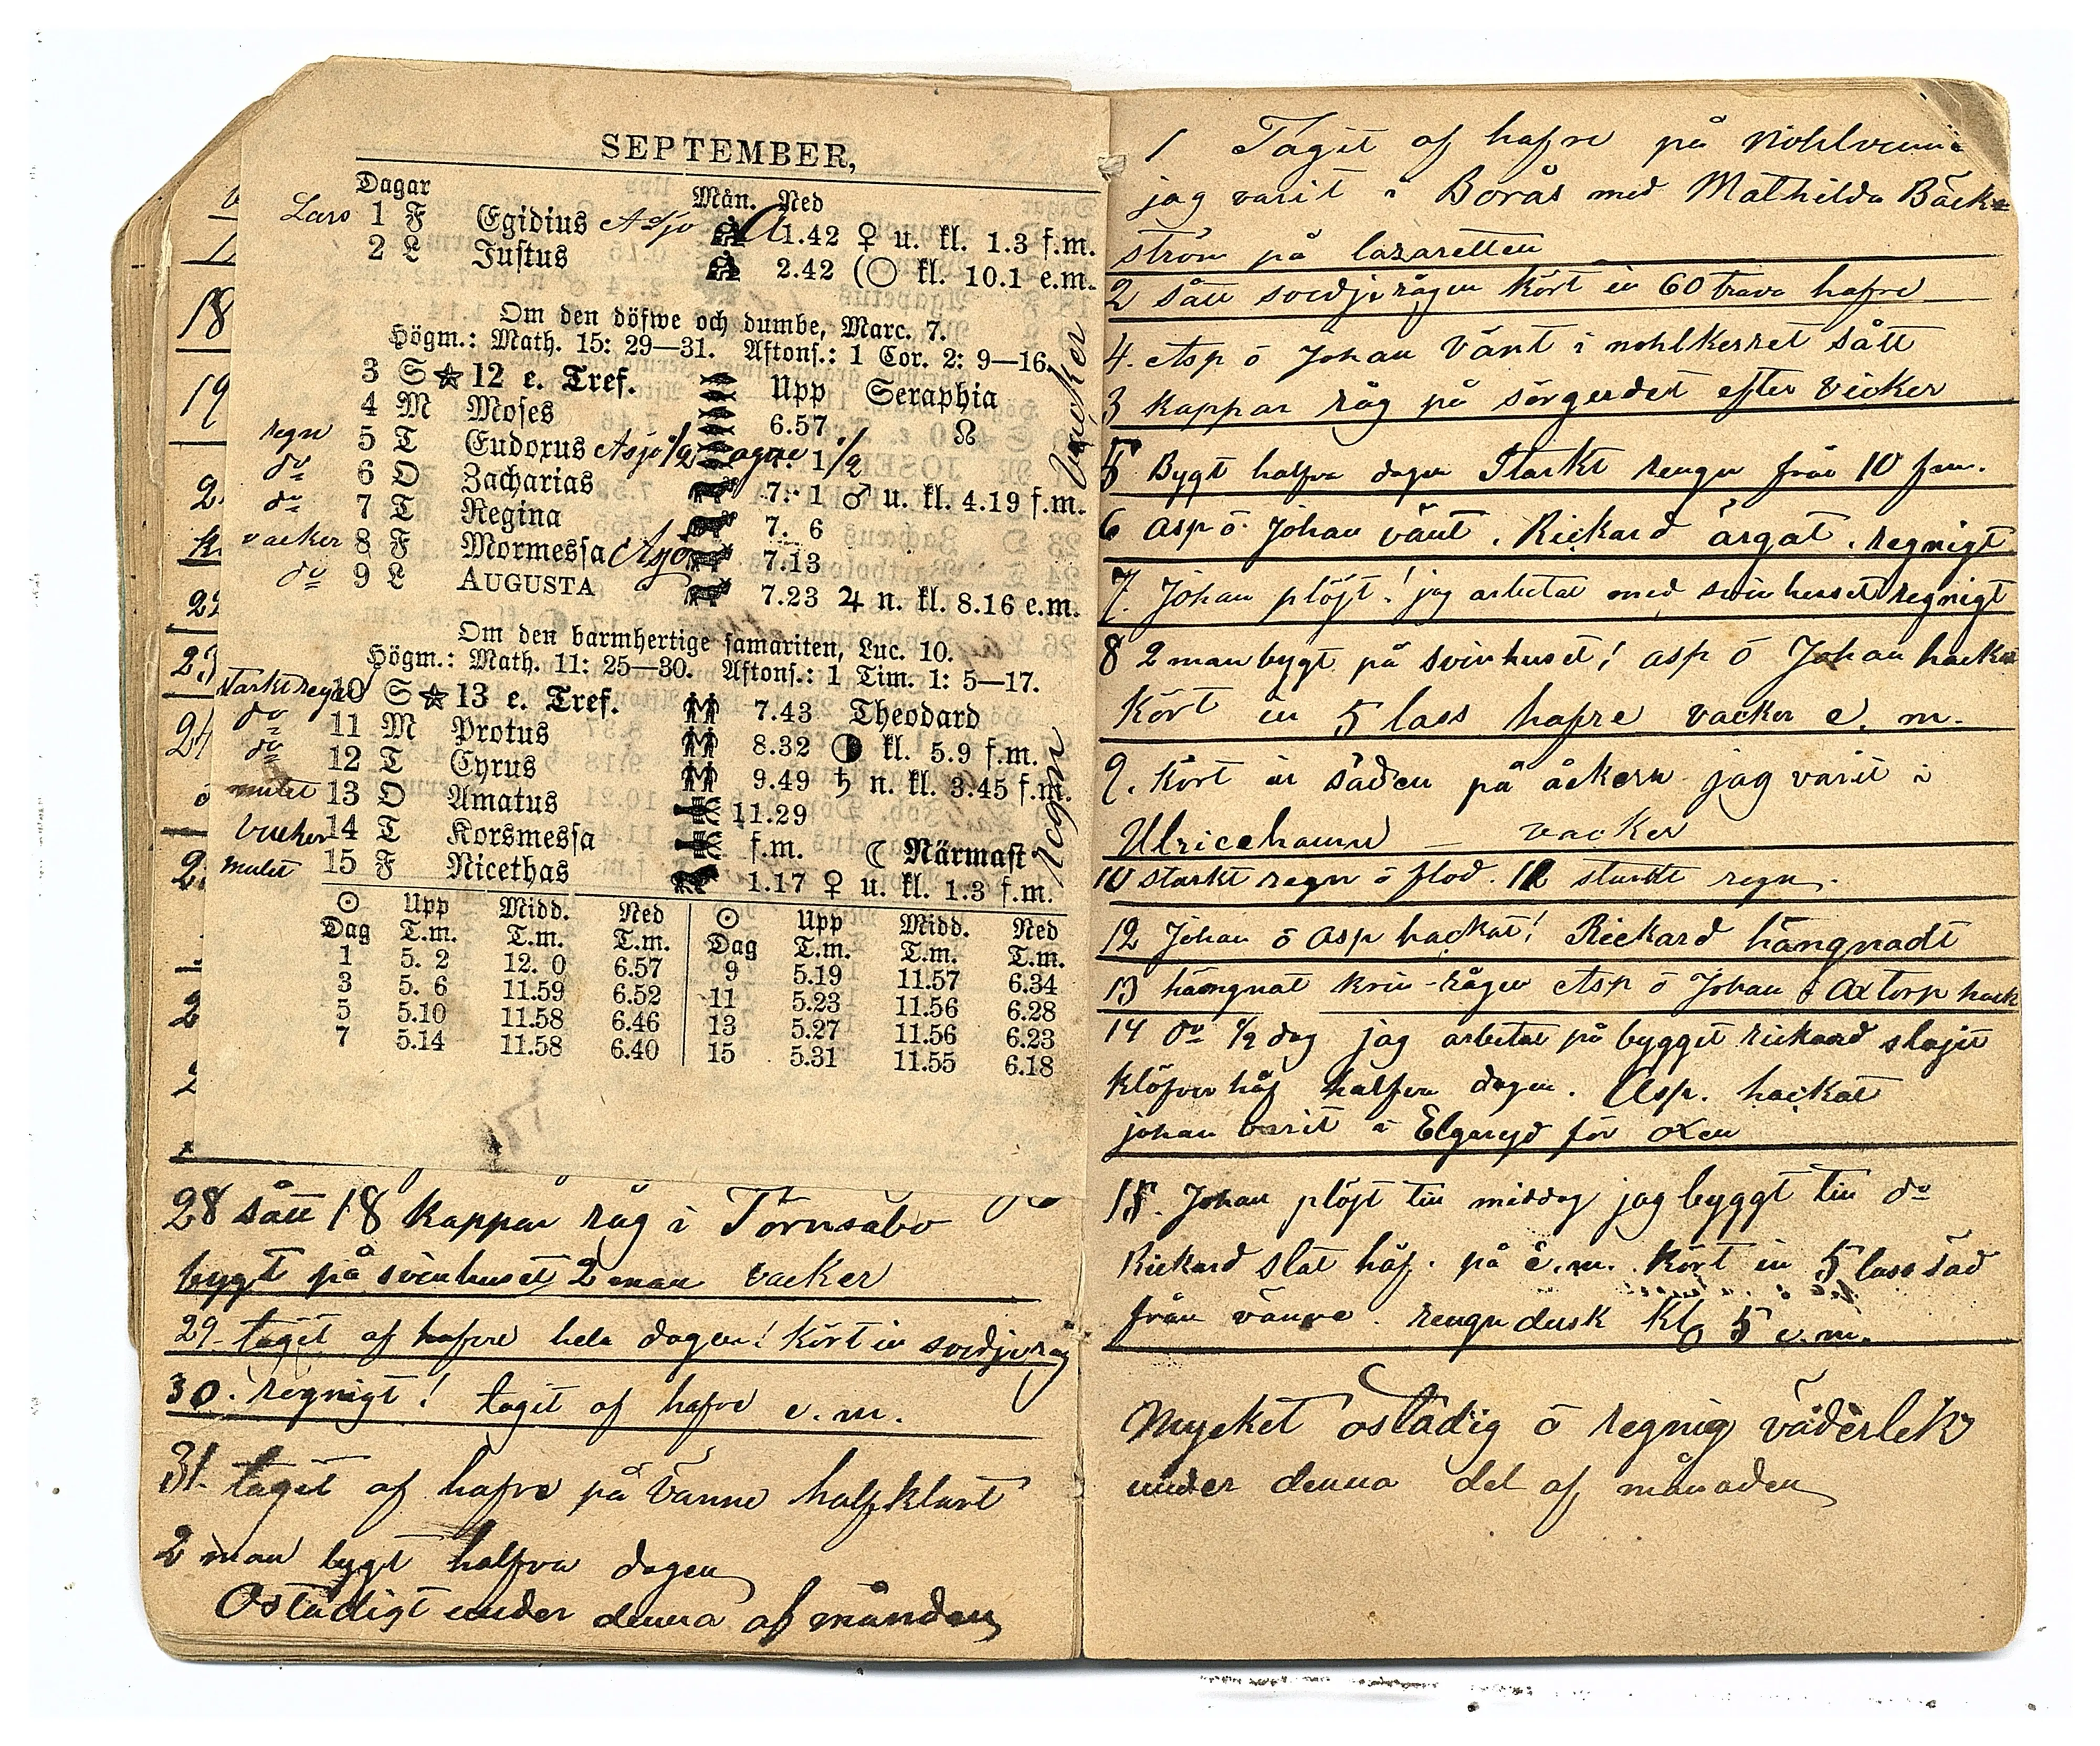 SEPTEMBER,
Dagar Mån. Ned
Lars 1 F Egidius Asjo 1.42 ♀ u. kl. 1.3 f.m.
2 L Justus 2.42 (○ kl. 10.1 e.m.
Om den döfwe och dumbe, Marc. 7.
Högm.: Math. 15: 29—31. Aftons.: 1 Cor. 2: 9—16.
3 S ☆ 12 e. Tref. Upp Seraphia
4 M Moses 6.57 ☊
regn 5 T Eudoxus Asjo 1/2 7. 1 1/2
do 6 O Zacharias 7. 1 ♂ u. kl. 4.19 f.m.
do 7 T Regina 7. 6
vacker 8 F Mormessa Asjo 7.13
do 9 L AUGUSTA 7.23 ♃ n. kl. 8.16 e.m.
vacker
Om den barmhertige samariten, Luc. 10.
Högm.: Math. 11: 25—30. Aftons.: 1 Tim. 1: 5—17.
starkt regn 10 S ☆ 13 e. Tref. 7.43 Theodard
do 11 M Protus 8.32 ◑ kl. 5.9 f.m.
do 12 T Cyrus 9.49 ♄ n. kl. 3.45 f.m.
mulet 13 O Amatus 11.29
Vacker 14 T Korsmessa f.m. ☾ Närmast
mulet 15 F Nicethas 1.17 ♀ u. kl. 1.3 f.m.
regn
☉ Upp Midd. Ned ☉ Upp Midd. Ned
Dag T.m. T.m. T.m. Dag T.m. T.m. T.m.
1 5. 2 12. 0 6.57 9 5.19 11.57 6.34
3 5. 6 11.59 6.52 11 5.23 11.56 6.28
5 5.10 11.58 6.46 13 5.27 11.56 6.23
7 5.14 11.58 6.40 15 5.31 11.55 6.18
18
19
22
23
24
28 sått 18 kappar råg i Törnsabo
bygt på svinhuset 2 man vacker
29 tagit af hafre hela dagen! kört in svedjeråg
30. regnigt! tagit af hafre e.m.
31. tagit af hafre på Vänne halfklart
2 man bygt halfva dagen
Ostadigt under denna af månden
1 Tagit af hafre på
jag varit i Borås med Mathilda Bäck
ström på lazaretten
2 sått svedjerågen kört in 60 trava hafre
4. Asp o Johan vänt i nohlkerret sått
3 kappar råg på sörgerdet efter vicker
5 Bygt halfva dagen Starkt rengn frå 10 fm.
6 Asp o Johan vänt. Rickard ärgat. regnigt
7. Johan plöjt! jag arbetat med svinhuset regnigt
8 2 man bygt på svinhuset! asp o Johan hackat
kört in 5 lass hafre vacker e. m.
9. kört in säden på åkern jag varit i
Ulricehamn — vacker
10 starkt regn o flod. 11 starkt regn.
12 Johan o Asp hackat! Rickard hängnadt
13 hängnat krin-rågen Asp o Johan o Axtorp hack
14 do 1/2 dag jag arbetat på bygget rickard slajit
klöfverhöj halfva dagen. Asp. hackat
johan varit i Elgaryd för oxen
15. Johan plöjt till middag jag byggt till do
Rickard slat höj. på e.m. kört in 5 lass säd
från vänne. rengndusk kl 5 e.m.
Mycket ostadig o regnig väderlek
under denna del af månaden